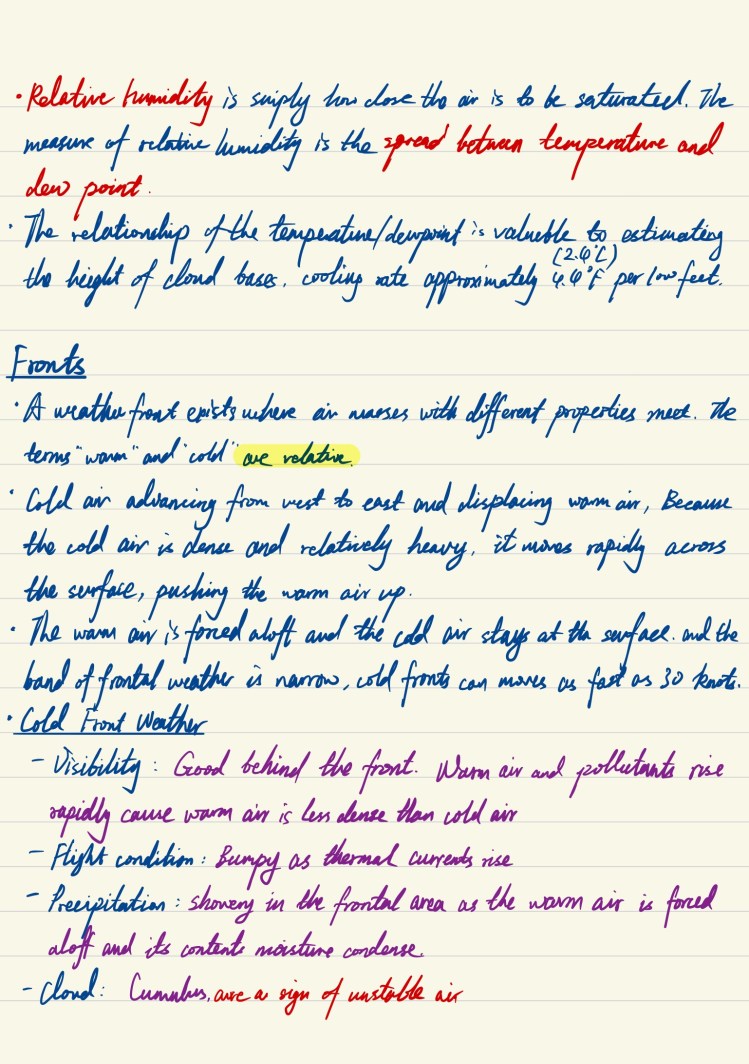 · Relative humidity is simply how close the air is to be saturated. The
measure of relative humidity is the spread between temperature and
dew point.
· The relationship of the temperature/dewpoint is valuable to estimating
(2.4°C)
the height of cloud bases, cooling rate approximately 4.4°F per 1000 feet.
Fronts
· A weather front exists where air masses with different properties meet. The
terms "warm" and "cold" are relative.
· Cold air advancing from west to east and displacing warm air, Because
the cold air is dense and relatively heavy, it moves rapidly across
the surface, pushing the warm air up.
· The warm air is forced aloft and the cold air stays at the surface. and the
band of frontal weather is narrow, cold fronts can moves as fast as 30 knots.
· Cold Front Weather
- Visibility: Good behind the front. Warm air and pollutants rise
rapidly cause warm air is less dense than cold air
- Flight condition: Bumpy as thermal currents rise
- Precipitation: showery in the frontal area as the warm air is forced
aloft and its contents moisture condense.
- Cloud: Cumulus, are a sign of unstable air